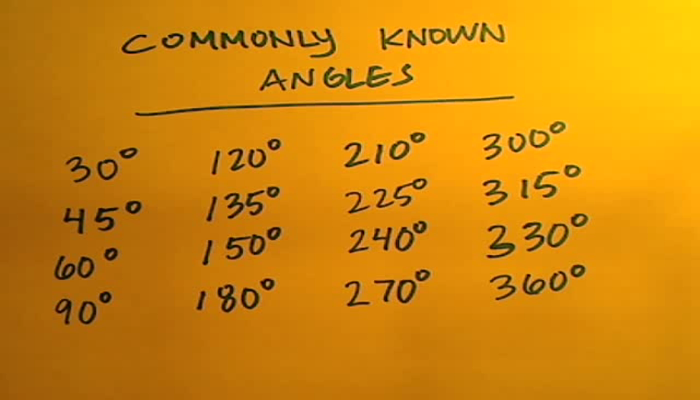 COMMONLY KNOWN
ANGLES
30° 120° 210° 300°
45° 135° 225° 315°
60° 150° 240° 330°
90° 180° 270° 360°